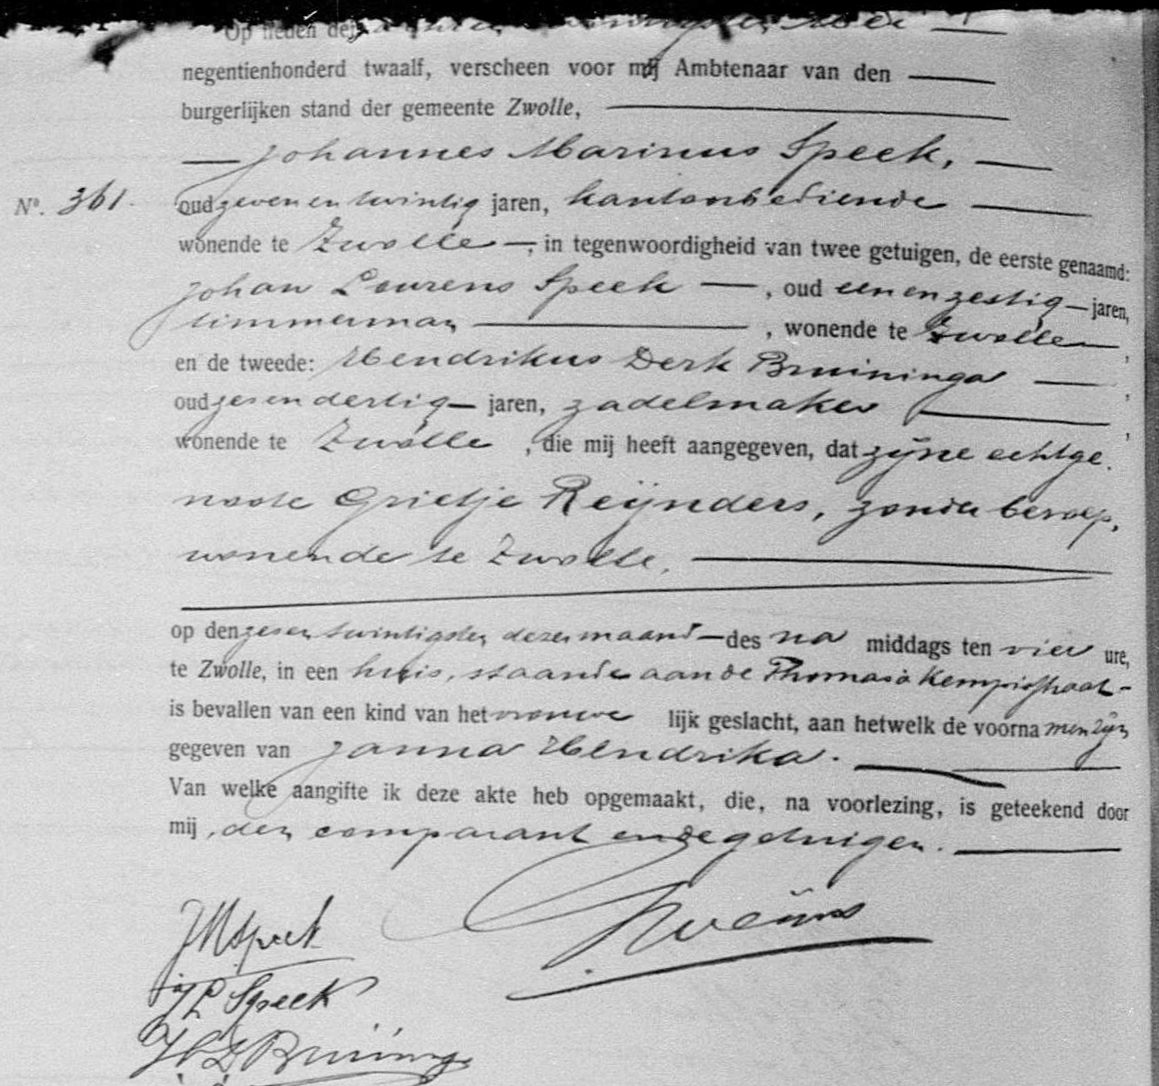 Op heden den
negentienhonderd twaalf, verscheen voor mij Ambtenaar van den
burgerlijken stand der gemeente Zwolle,
Johannes Marinus Speek,
No. 361. oud zeven en twintig jaren, kantoorbediende
wonende te Zwolle, in tegenwoordigheid van twee getuigen, de eerste genaamd:
Johan Lourens Speek, oud een en zestig jaren,
timmerman, wonende te Zwolle,
en de tweede: Hendrikus Derk Bruininga,
oud zes en dertig jaren, zadelmaker,
wonende te Zwolle, die mij heeft aangegeven, dat zijne echtge-
noote Grietje Reijnders, zonder beroep,
wonende te Zwolle,
op den zes en twintigsten dezer maand des na middags ten vier ure,
te Zwolle, in een huis, staande aan de Thomas à Kempisstraat
is bevallen van een kind van het vrouwe lijk geslacht, aan hetwelk de voorna men zijn
gegeven van Janna Hendrika.
Van welke aangifte ik deze akte heb opgemaakt, die, na voorlezing, is geteekend door
mij, den comparant en de getuigen.
JMSpeek
JL Speek
HD Bruininga